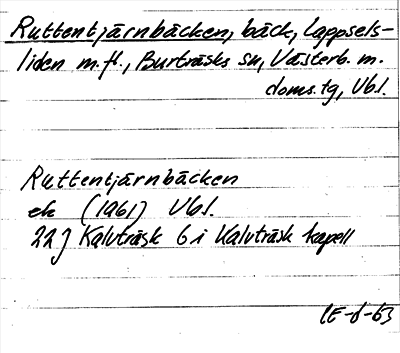 Ruttentjärnbäcken, bäck, Lappsels-
liden m.fl., Burträsks sn, Västerb. m.
doms.tg, Vbl.
Ruttentjärnbäcken
ek (1961) Vbl.
22J Kalvträsk 6 i Kalvträsk kapell